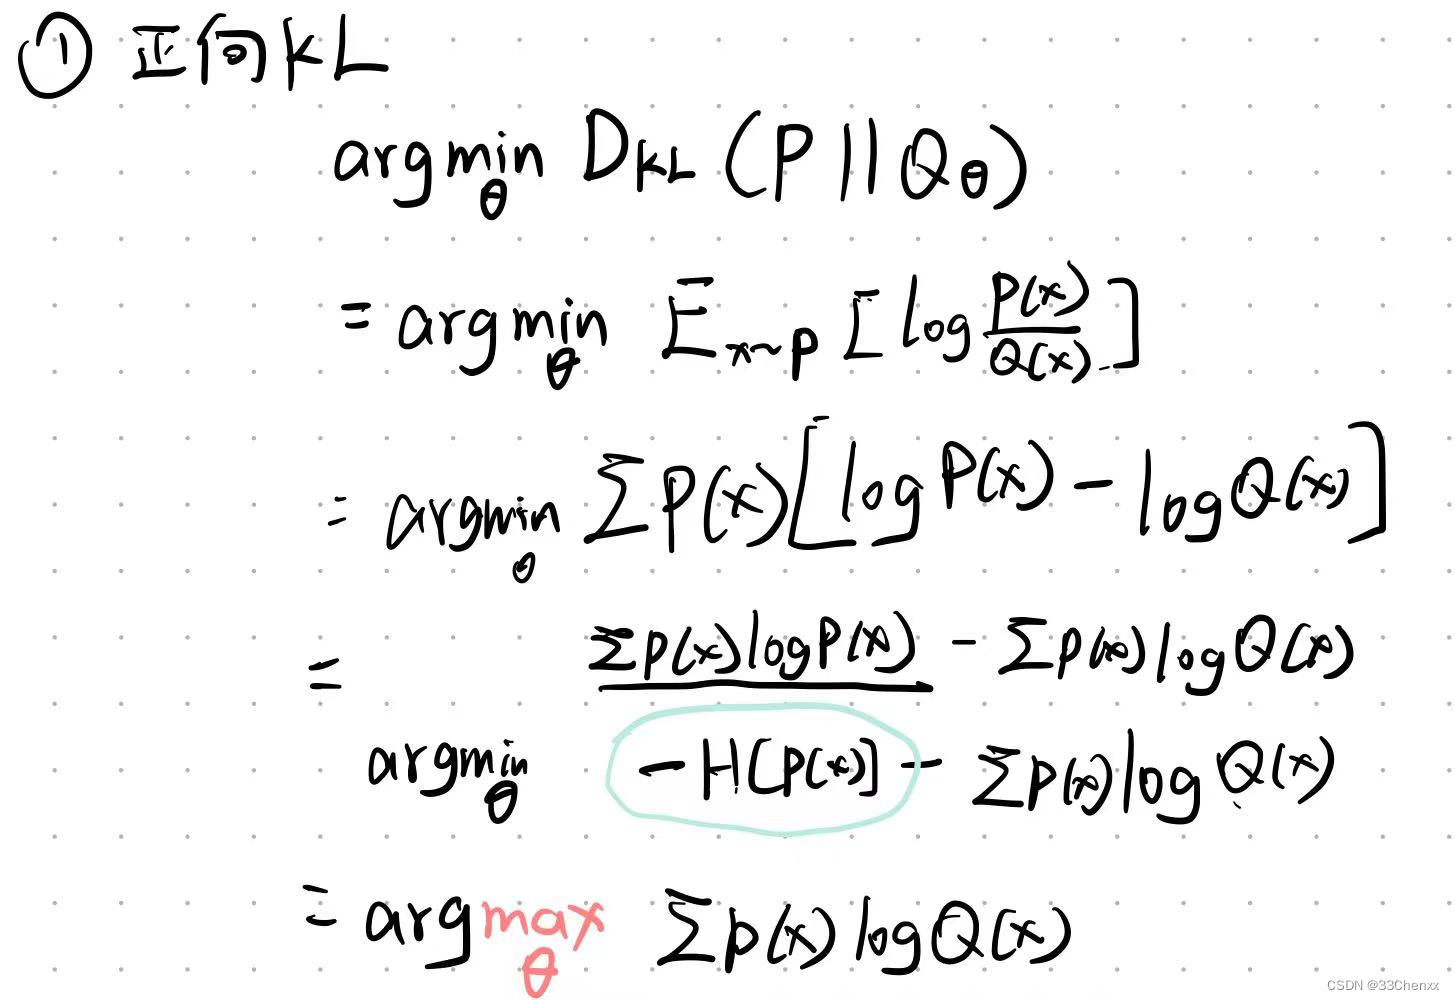 ① 正向KL
argmin_θ D_KL (P || Q_θ)
= argmin_θ E_{x~p} [log P(x)/Q(x)]
= argmin_θ Σ P(x)[log P(x) - log Q(x)]
= Σ p(x) log P(x) - Σ p(x) log Q(x)
argmin_θ -H[P(x)] - Σ p(x) log Q(x)
= argmax_θ Σ p(x) log Q(x)
CSDN @33Chenxx